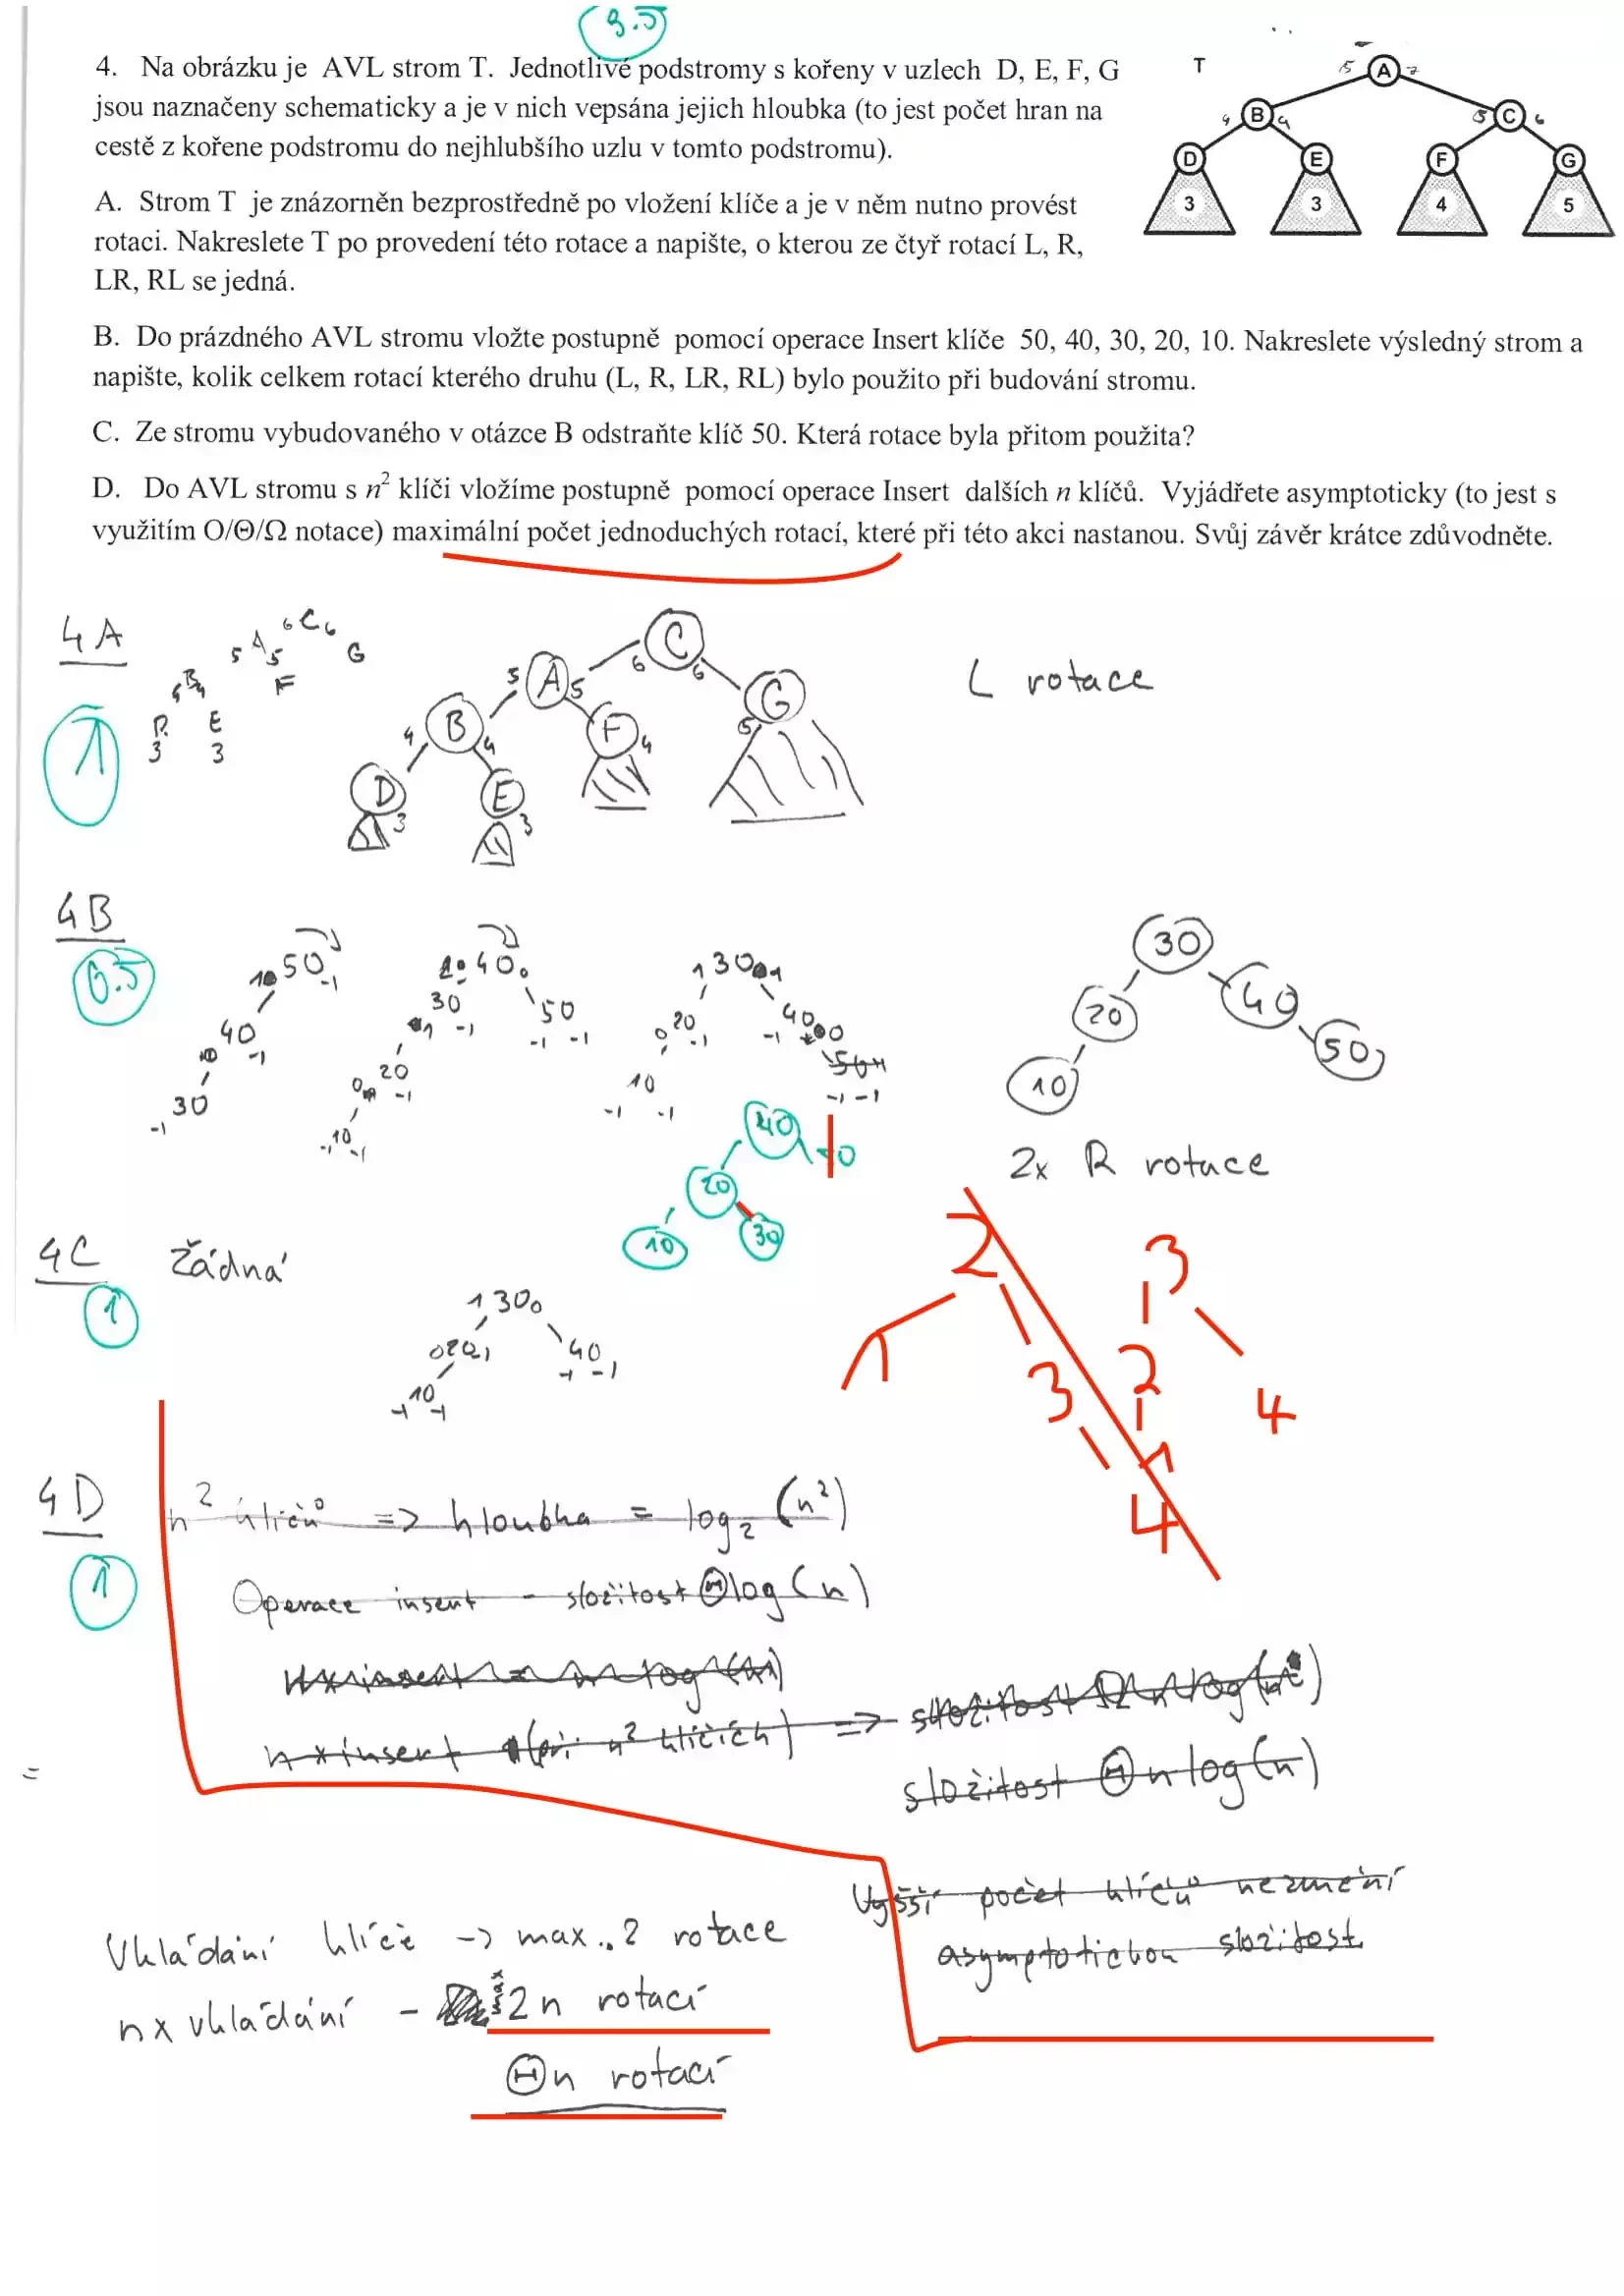 3.5
4. Na obrázku je AVL strom T. Jednotlivé podstromy s kořeny v uzlech D, E, F, G
jsou naznačeny schematicky a je v nich vepsána jejich hloubka (to jest počet hran na
cestě z kořene podstromu do nejhlubšího uzlu v tomto podstromu).
T
5 A 7
4 B 4
5 C 6
D E F G
3 3 4 5
A. Strom T je znázorněn bezprostředně po vložení klíče a je v něm nutno provést
rotaci. Nakreslete T po provedení této rotace a napište, o kterou ze čtyř rotací L, R,
LR, RL se jedná.
B. Do prázdného AVL stromu vložte postupně pomocí operace Insert klíče 50, 40, 30, 20, 10. Nakreslete výsledný strom a
napište, kolik celkem rotací kterého druhu (L, R, LR, RL) bylo použito při budování stromu.
C. Ze stromu vybudovaného v otázce B odstraňte klíč 50. Která rotace byla přitom použita?
D. Do AVL stromu s n² klíči vložíme postupně pomocí operace Insert dalších n klíčů. Vyjádřete asymptoticky (to jest s
využitím O/Θ/Ω notace) maximální počet jednoduchých rotací, které při této akci nastanou. Svůj závěr krátce zdůvodněte.
4A
1
6 C 6
5 A 5
G
F
E
3 3
C
6 6
5 A 5
G
5
B
4 4
F 4
D 3
E 3
L rotace
4B
0.5
50 -1
40 -1
30
-1
40
30 -1
50
-1 -1
20 -1
10
-1 -1
1 30 1
0 20 -1
-1 40 0
10
-1 -1
50
-1 -1
30
20 40
10 50
2x R rotace
40
20
10 30
4C
1
Žádná
1 30 0
0 20 -1
40
-1 -1
10
-1 -1
2
1
3
4
3
2
1
4
4D
1
n² klíčů => hloubka = log₂ (n²)
Operace insert - složitost Θlog(n)
nxinsert = n log (n)
nxinsert (při n² klíčích) =>
složitost Θ n log(n)
Vyšší počet klíčů nezmění
asymptotickou složitost
Vkládání klíče -> max.. 2 rotace
nx vkládání - max 2n rotací
Θn rotací